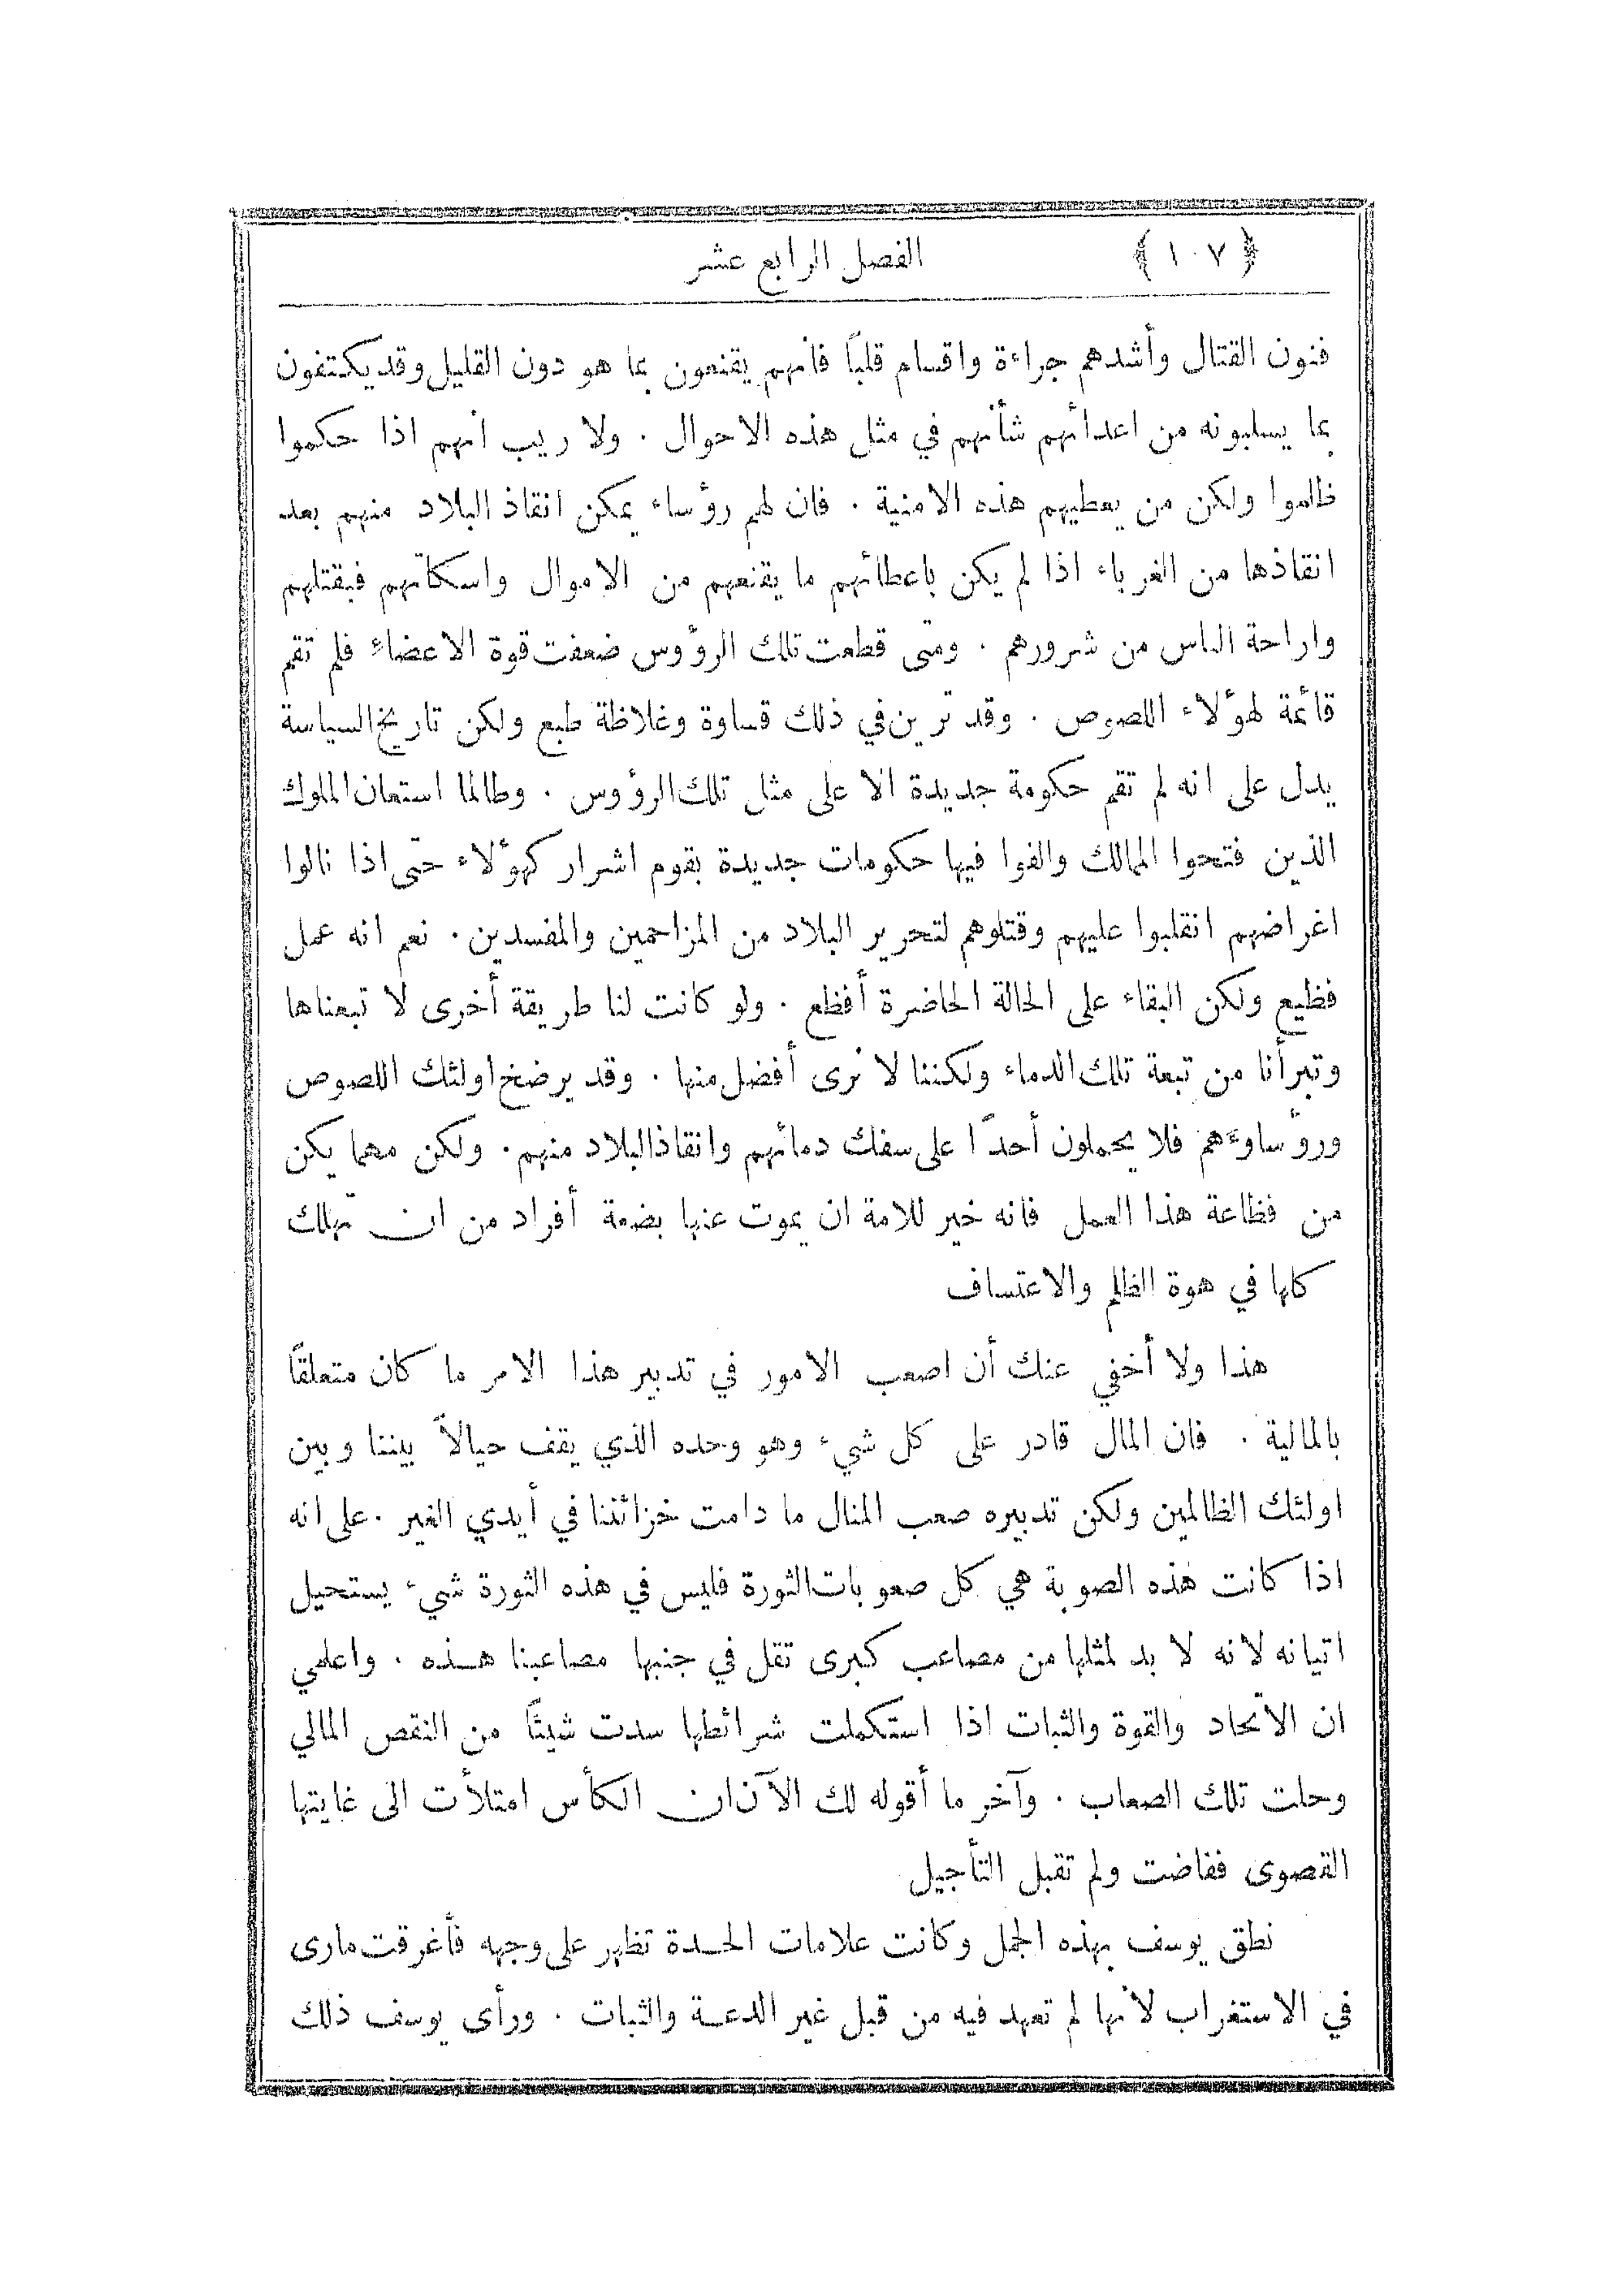 ﴿ ١٠٧ ﴾ الفصل الرابع عشر
فنون القتال وأشدهم جراءة واقسام قلبًا فانهم يقنعون بما هو دون القليل وقد يكتفون
بما يسلبونه من اعدائهم شأنهم في مثل هذه الاحوال . ولا ريب انهم اذا حكموا
ظلموا ولكن من يعطيهم هذه الامنية . فان لهم رؤساء يمكن انقاذ البلاد منهم بعد
انقاذها من الغرباء اذا لم يكن باعطائهم ما يقنعهم من الاموال واسكاتهم فبقتلهم
واراحة الناس من شرورهم . ومتى قطعت تلك الرؤوس ضعفت قوة الاعضاء فلم تقم
قائمة لهؤلاء اللصوص . وقد ترين في ذلك قساوة وغلاظة طبع ولكن تاريخ السياسة
يدل على انه لم تقم حكومة جديدة الا على مثل تلك الرؤوس . وطالما استعان الملوك
الذين فتحوا الممالك والفوا فيها حكومات جديدة بقوم اشرار كهؤلاء حتى اذا نالوا
اغراضهم انقلبوا عليهم وقتلوهم لتحرير البلاد من المزاحمين والمفسدين . نعم انه عمل
فظيع ولكن البقاء على الحالة الحاضرة أفظع . ولو كانت لنا طريقة أخرى لا تبعناها
وتبرأنا من تبعة تلك الدماء ولكننا لا نرى أفضل منها . وقد يرضخ اولئك اللصوص
ورؤساوءهم فلا يحملون أحدًا على سفك دمائهم وانقاذ البلاد منهم . ولكن مهما يكن
من فظاعة هذا العمل فانه خير للامة ان يموت عنها بضعة أفراد من ان تهلك
كلها في هوة الظلم والاعتساف
هذا ولا أخفي عنك أن اصعب الامور في تدبير هذا الامر ما كان متعلقًا
بالمالية . فان المال قادر على كل شيء وهو وحده الذي يقف حيالاً بيننا وبين
اولئك الظالمين ولكن تدبيره صعب المنال ما دامت خزائننا في أيدي الغير . على انه
اذا كانت هذه الصوبة هي كل صعوبات الثورة فليس في هذه الثورة شيء يستحيل
اتيانه لانه لا بد لمثلها من مصاعب كبرى تقل في جنبها مصاعبنا هذه . واعلمي
ان الاتحاد والقوة والثبات اذا استكملت شرائطها سدت شيئًا من النقص المالي
وحلت تلك الصعاب . وآخر ما أقوله لك الآن ان الكأس امتلأت الى غايتها
القصوى ففاضت ولم تقبل التأجيل
نطق يوسف بهذه الجمل وكانت علامات الحدة تظهر على وجهه فأغرقت مارى
في الاستغراب لانها لم تعهد فيه من قبل غير الدعة والثبات . ورأى يوسف ذلك